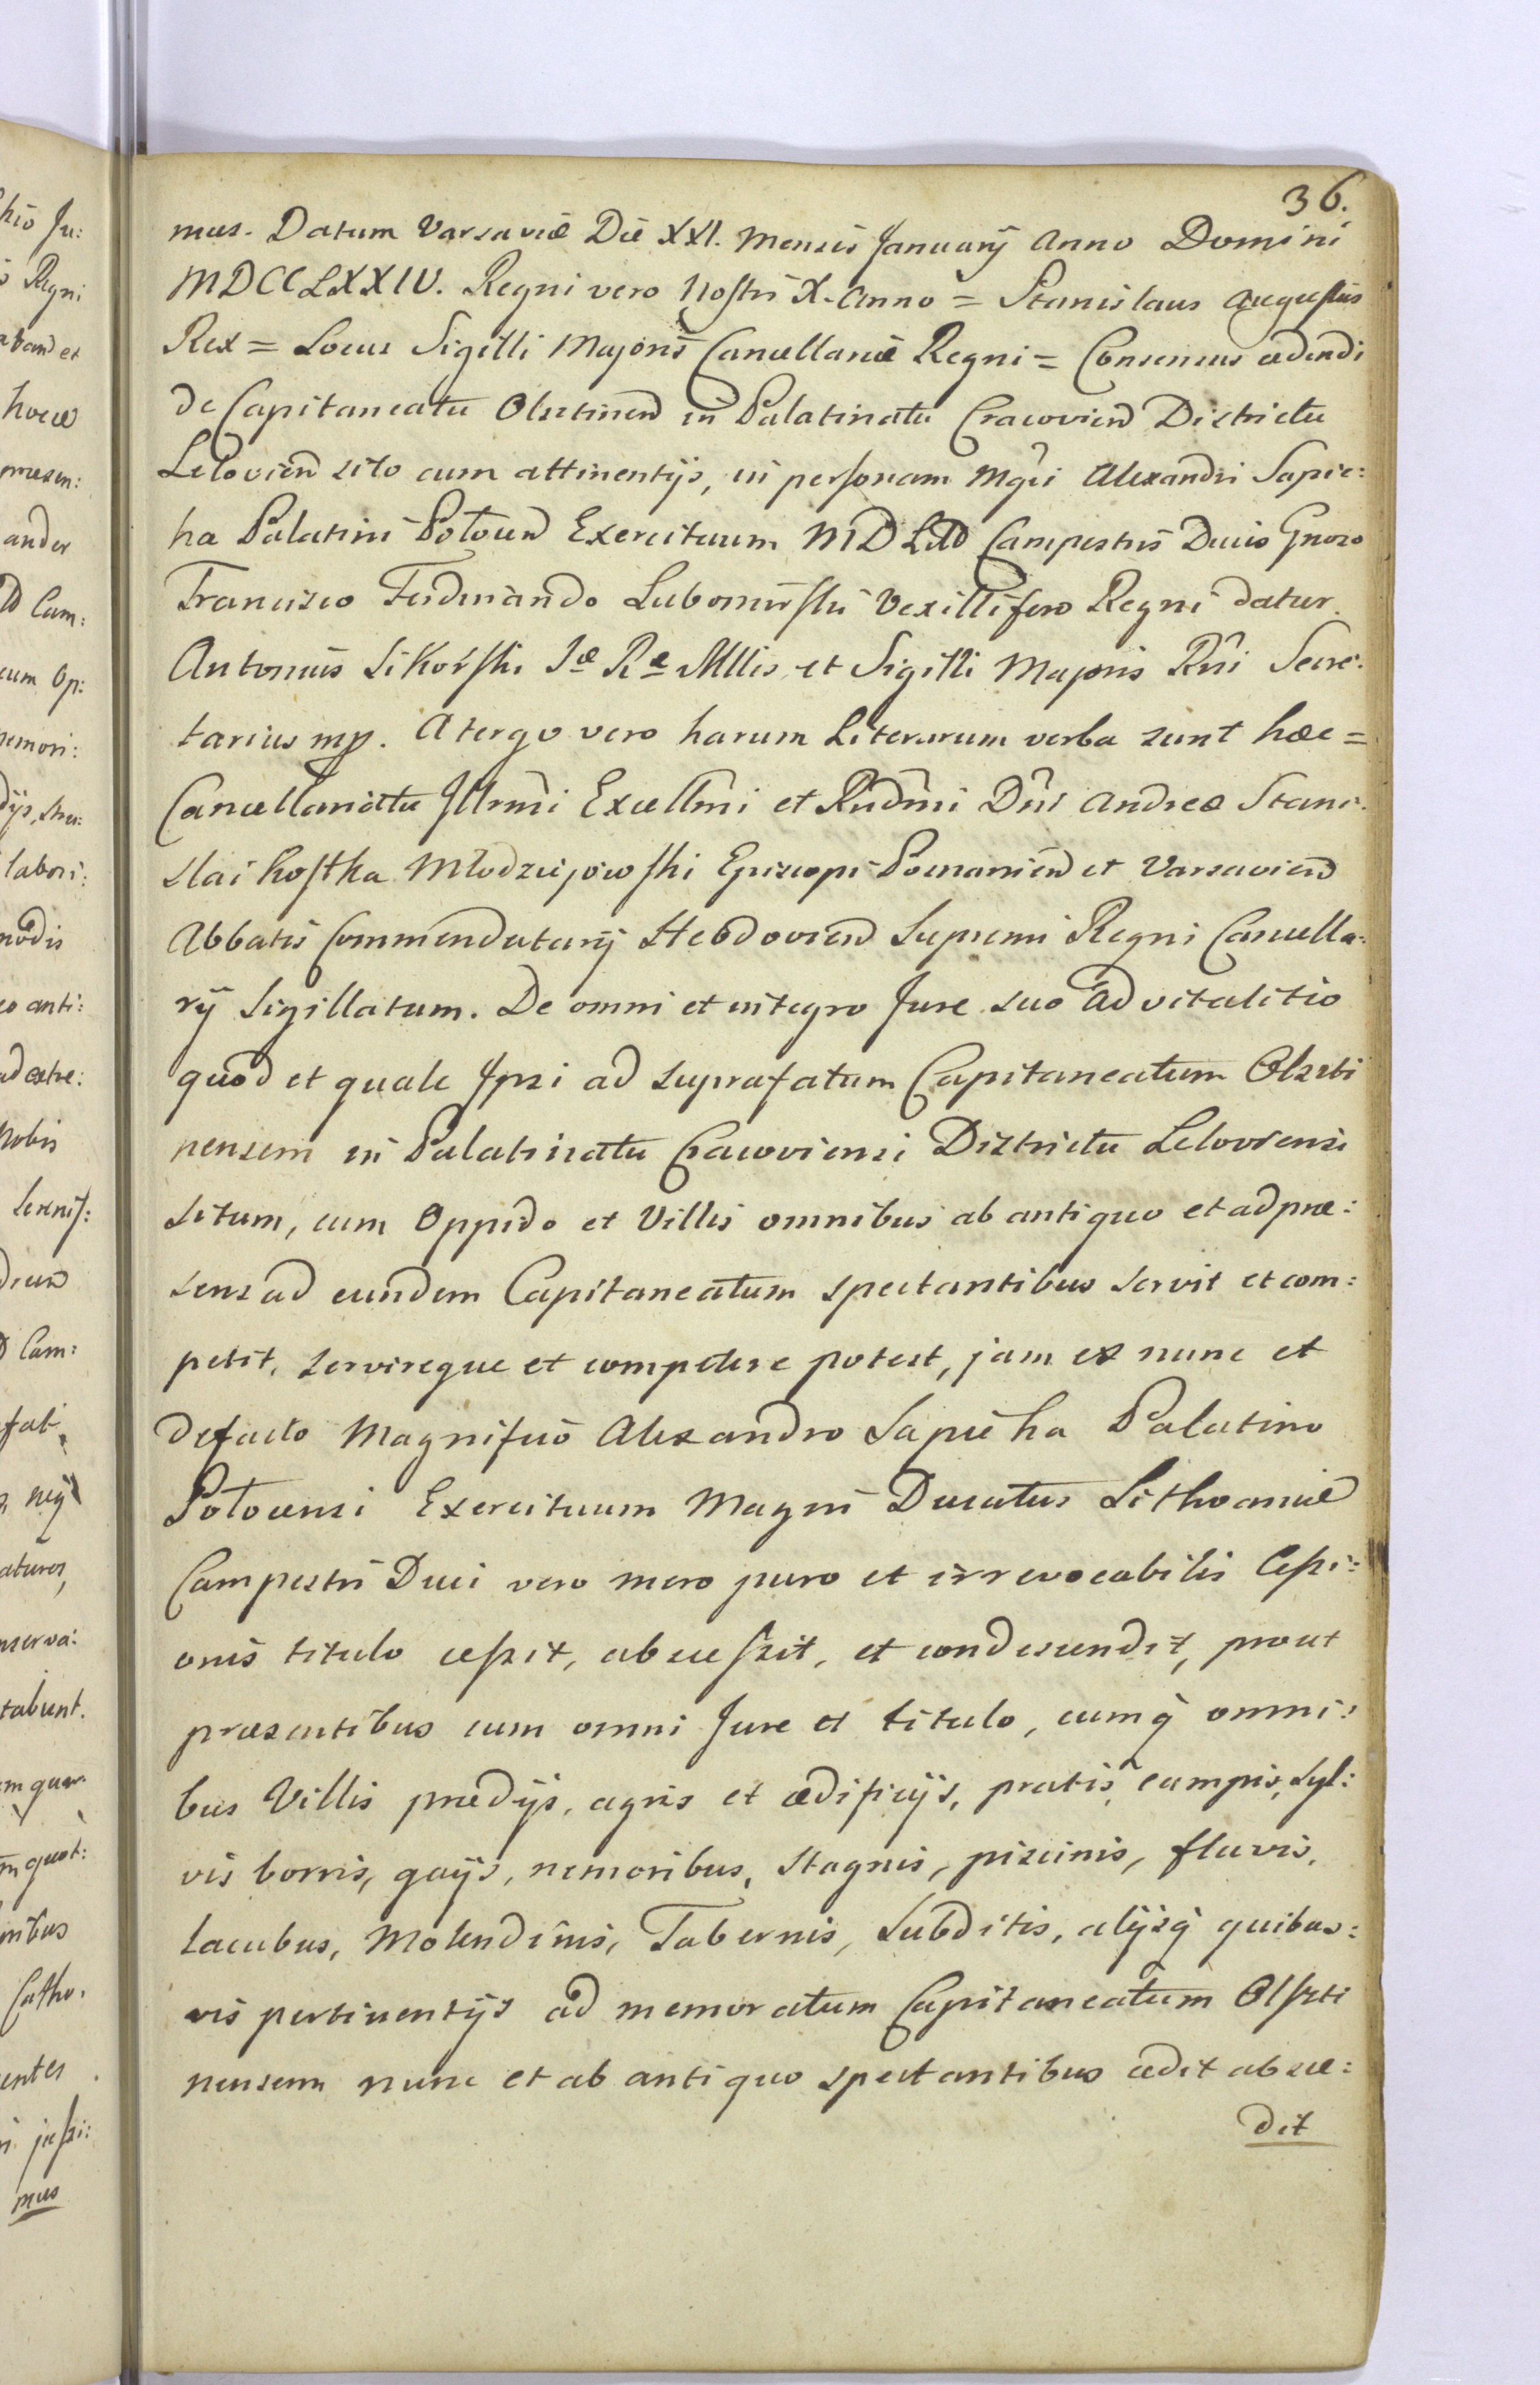 36.
mus. Datum Varsaviæ Die XXI. Mensis Januarij Anno Domini
MDCCLXXIV. Regni vero Nostri X. Anno = Stanislaus Augustus
Rex = Locus Sigilli Majoris Cancellariæ Regni = Consensus cedendi
de Capitaneatu Olsztinen in Palatinatu Cracovien Districtu
Lelovien sito cum attinentijs, in personam Mgci Alexandri Sapie:
ha Palatini Polocen Exercituum MD Litt Campestris Ducis Gnoso
Francisco Ferdinando Lubomirski Vexillifero Regni datur.
Antonius Sikorski Sæ Ræ Mttis et Sigilli Majoris Rni Secre:
tarius mp. Atergo vero harum Literarum verba sunt hæc =
Cancellariatu Illrmi Excellmi et Rndmi Dni Andreæ Stani:
slai Kostka Młodziejowski Episcopi Posnanien et Varsavien
Abbatis Commendatarij Hebdovien Supremi Regni Cancella:
rij Sigillatum. De omni et integro Jure suo Advitalitio
quod et quale Ipsi ad suprafatum Capitaneatum Olszti
nensem in Palatinatu Cracoviensi Districtu Leloviensi
situm, cum Oppido et Villis omnibus ab antiquo et ad præ:
sens ad eundem Capitaneatum spectantibus servit et com:
petit, servireque et competere potest, jam ex nunc et
defacto Magnifico Alexandro Sapieha Palatino
Polocensi Exercituum Magni Ducatus Lithvaniæ
Campestri Duci vero mero puro et irrevocabilis Cessi:
onis titulo cessit, abcessit, et condescendit, prout
præsentibus cum omni Jure et titulo, cumq omni:
bus Villis prædijs, agris et ædificijs, pratis, campis, syl:
vis borris, gaijs, nemoribus, stagnis, piscinis, fluvis,
lacubus, Molendinis, Tabernis, Subditis, alijsq quibus:
vis pertinentijs ad memoratum Capitaneatum Olszti
nensem nunc et ab antiquo spectantibus cedit abscæ:
dit